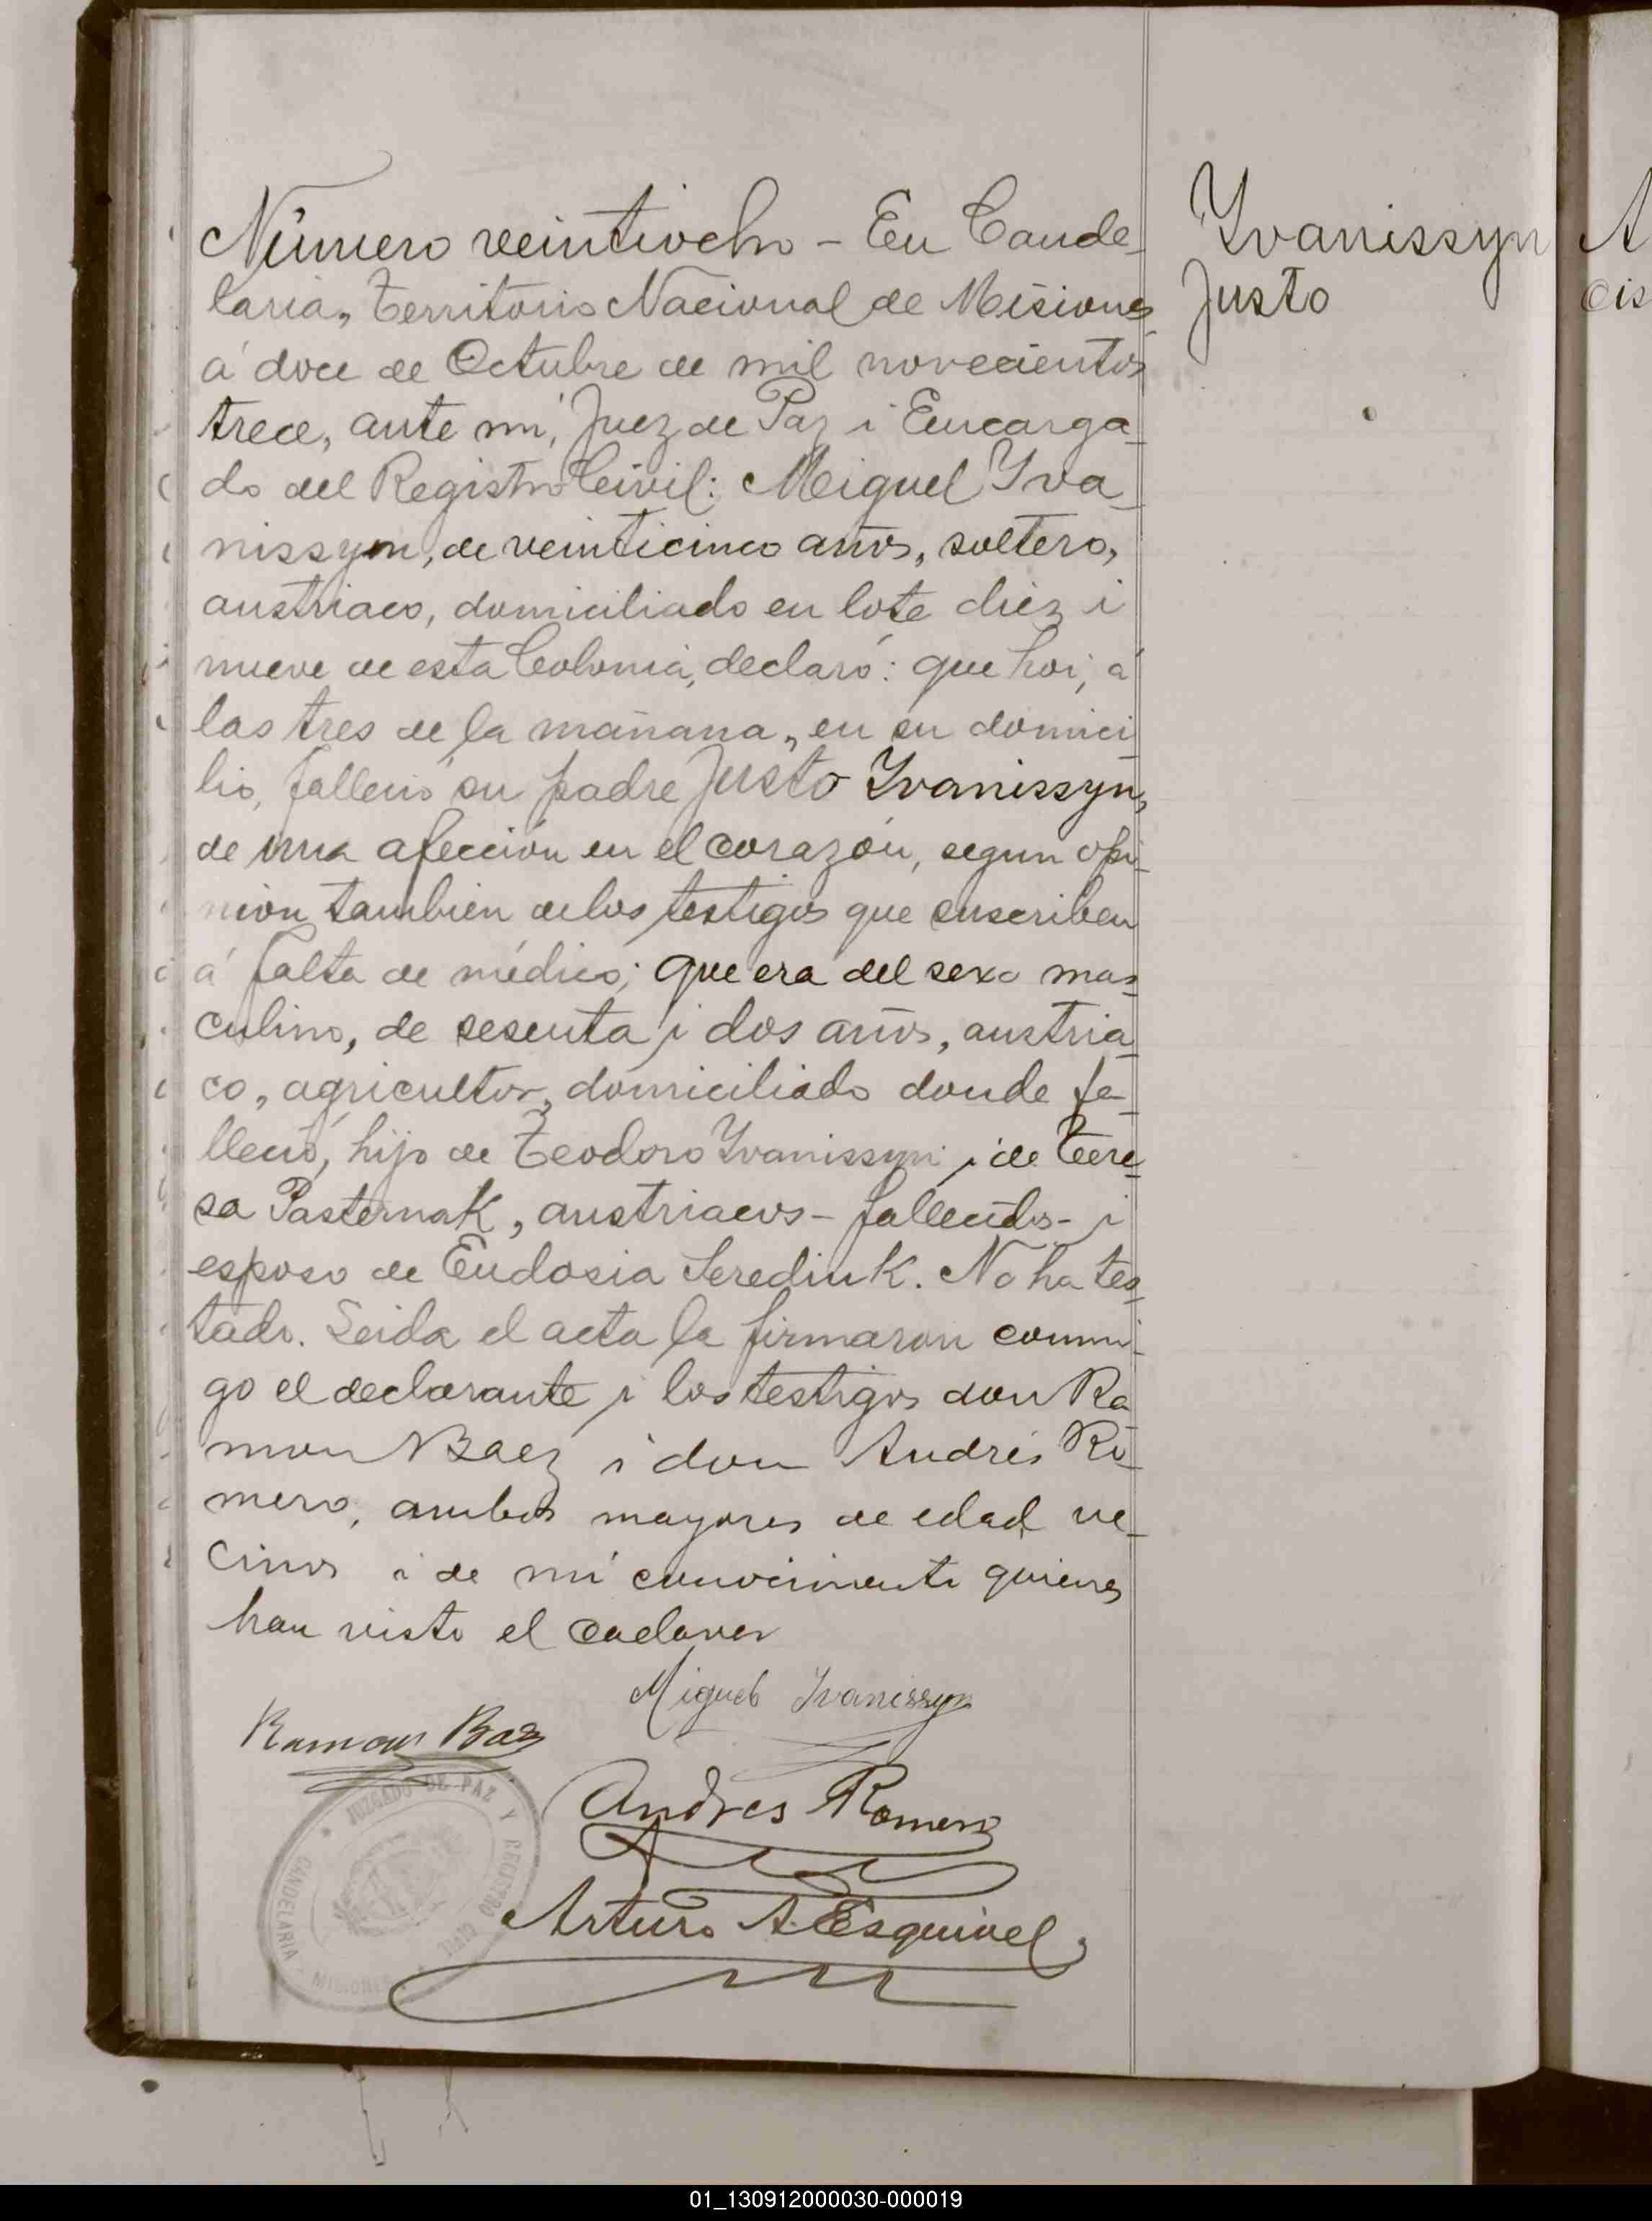 Número veintiocho - En Cande-
laria, Territorio Nacional de Misiones
á doce de Octubre de mil novecientos
trece, ante mí, Juez de Paz i Encarga-
do del Registro Civil: Miguel Yva-
nissyn, de veinticinco años, soltero,
austriaco, domiciliado en lote diez i
nueve de esta Colonia, declaró: que hoi, á
las tres de la mañana, en su domici
lio, falleció su padre Justo Yvanissyn,
de una afección en el corazón, segun opi-
nion tambien de los testigos que suscriben
á falta de médico; que era del sexo mas-
culino, de sesenta i dos años, austria-
co, agricultor, domiciliado donde fa-
lleció, hijo de Teodoro Yvanissyn i de Tere-
sa Pasternak, austriacos - fallecidos - i
esposo de EudosiaSerediuk. No ha tes-
tado. Leida el acta la firmaron conmi-
go el declarante i los testigos don Ra-
mon Baez i don Andrés Ro-
mero, ambos mayores de edad ve-
cinos i de mi conocimiento quienes
han visto el cadaver
Yvanissyn
Justo
Miguel Yvanissyn
Ramon Baez
Andres Romero
Arturo A. Esquivel
JUZGADO DE PAZ Y REGISTRO CIVIL
CANDELARIA - MISIONES
A
cis
01_130912000030-000019